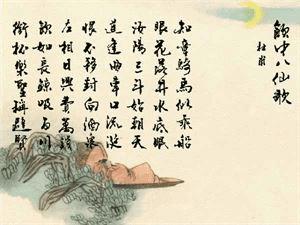 飲中八仙歌
杜甫
知章騎馬似乘船
眼花落井水底眠
汝陽三斗始朝天
道逢曲車口流涎
恨不移封向酒泉
左相日興費萬錢
飲如長鯨吸百川
銜杯樂聖稱避賢